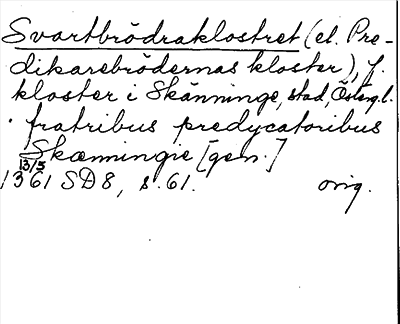 Svartbrödraklostret (el. Pre-
dikarebrödernas kloster), f.
kloster i Skänninge, stad, Östergl.
. fratribus predycatoribus
Skæmningie [gen.]
13/5
1361 SD 8, s. 61. orig.